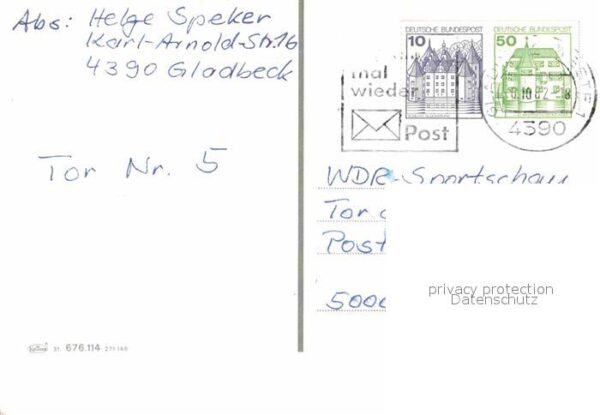 Abs: Helge Speker
Karl-Arnold-Str.16
4390 Gladbeck
Tor Nr. 5
DEUTSCHE BUNDESPOST
10
DEUTSCHE BUNDESPOST
50
mal
wieder
Post
82
4390
WDR-Sportschau
Tor
Post
500
privacy protection
Datenschutz
676.114